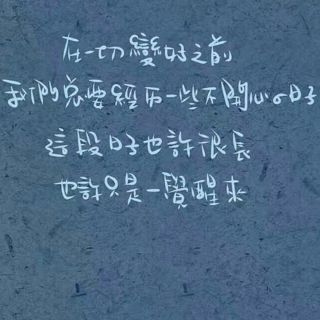 在一切變好之前
我們總要經歷一些不開心的日子
這段日子也許很長
也許只是一覺醒來